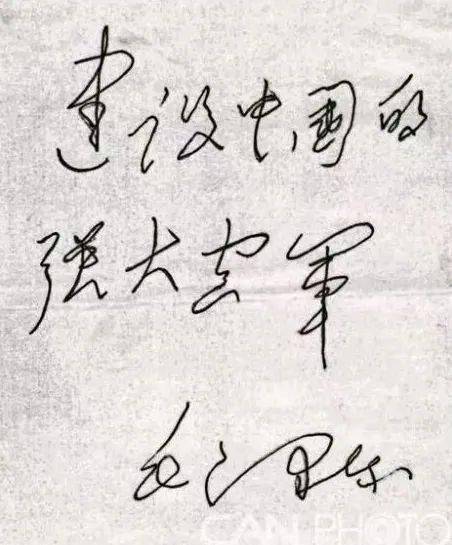 建设中国的
强大空军
毛泽东
CAN PHOTO